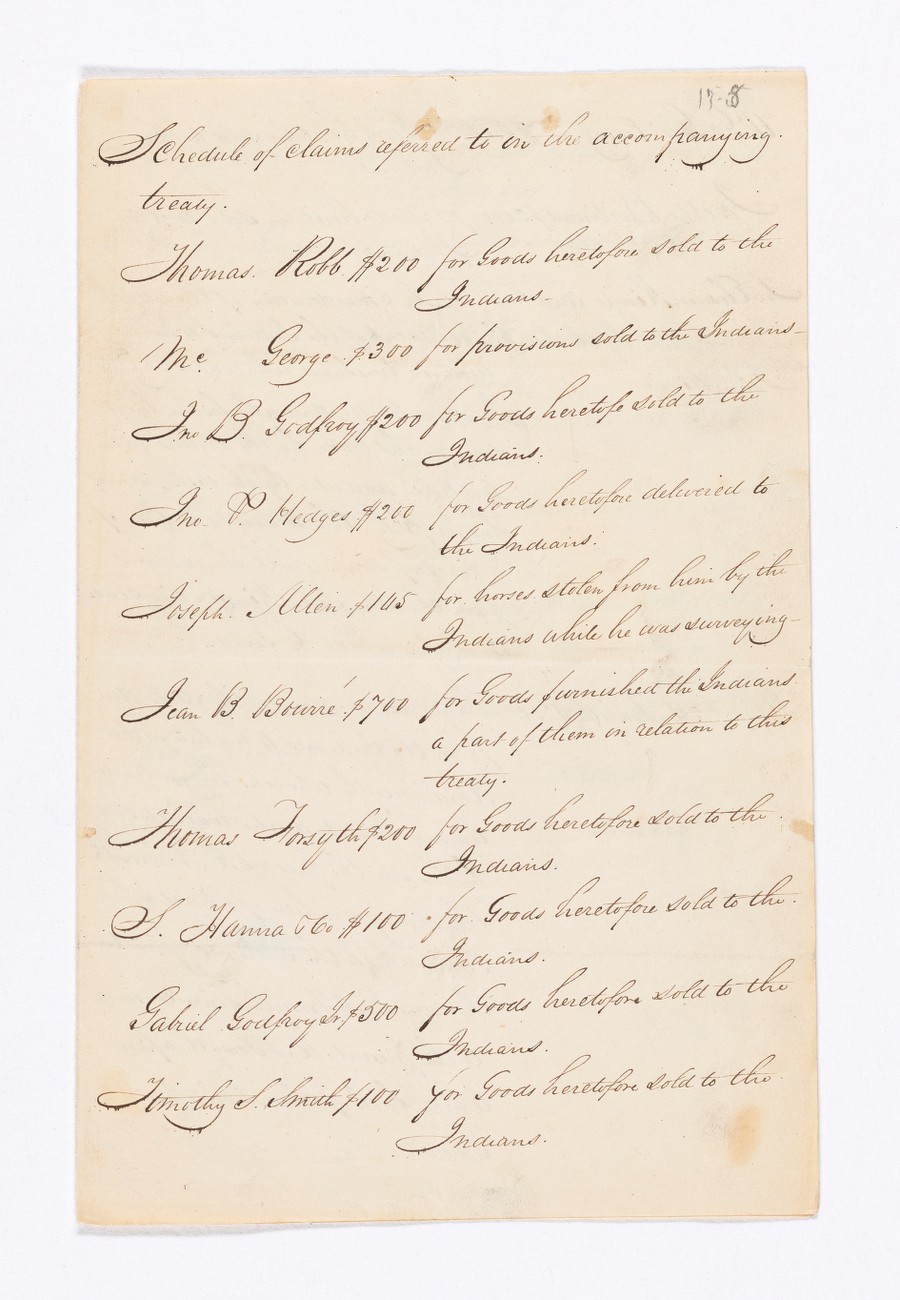 17-8
Schedule of claims referred to in the accompanying
treaty.
Thomas. Robb. $200 for Goods heretofore sold to the
Indians-
Mc. George. $300 for provisions sold to the Indians-
Jno B. Godfroy $200 for Goods heretofe sold to the
Indians.
Jno. P. Hedges $200 for Goods heretofore delivered to
the Indians.
Joseph. Allen $145 for horses stolen from him by the
Indians while he was surveying-
Jean B. Bourré $700 for Goods furnished the Indians
a part of them in relation to this
treaty.
Thomas Forsyth $200 for Goods heretofore sold to the
Indians.
S. Hanna & Co $100 for Goods heretofore sold to the.
Indians.
Gabriel Godfroy Jr. $500 for Goods heretofore sold to the
Indians.
Timothy S. Smith $100 for Goods heretofore sold to the
Indians.